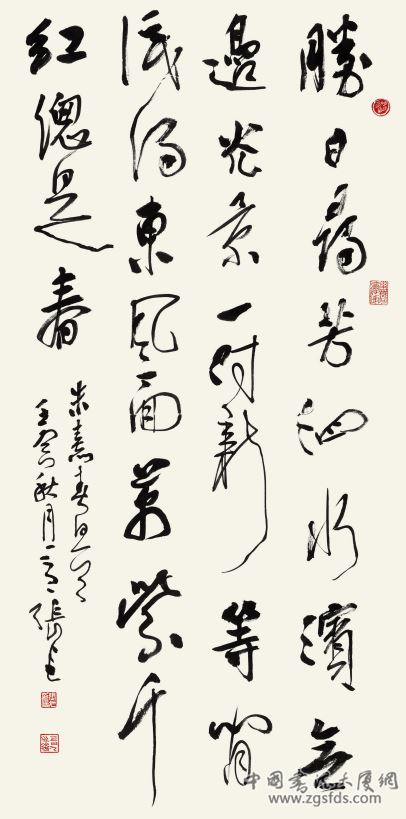 勝日尋芳泗水濱無
邊光景一時新等閒
識得東風面萬紫千
紅總是春
朱熹春日
秋月張
中國書法大廈網
www.zgsfds.com